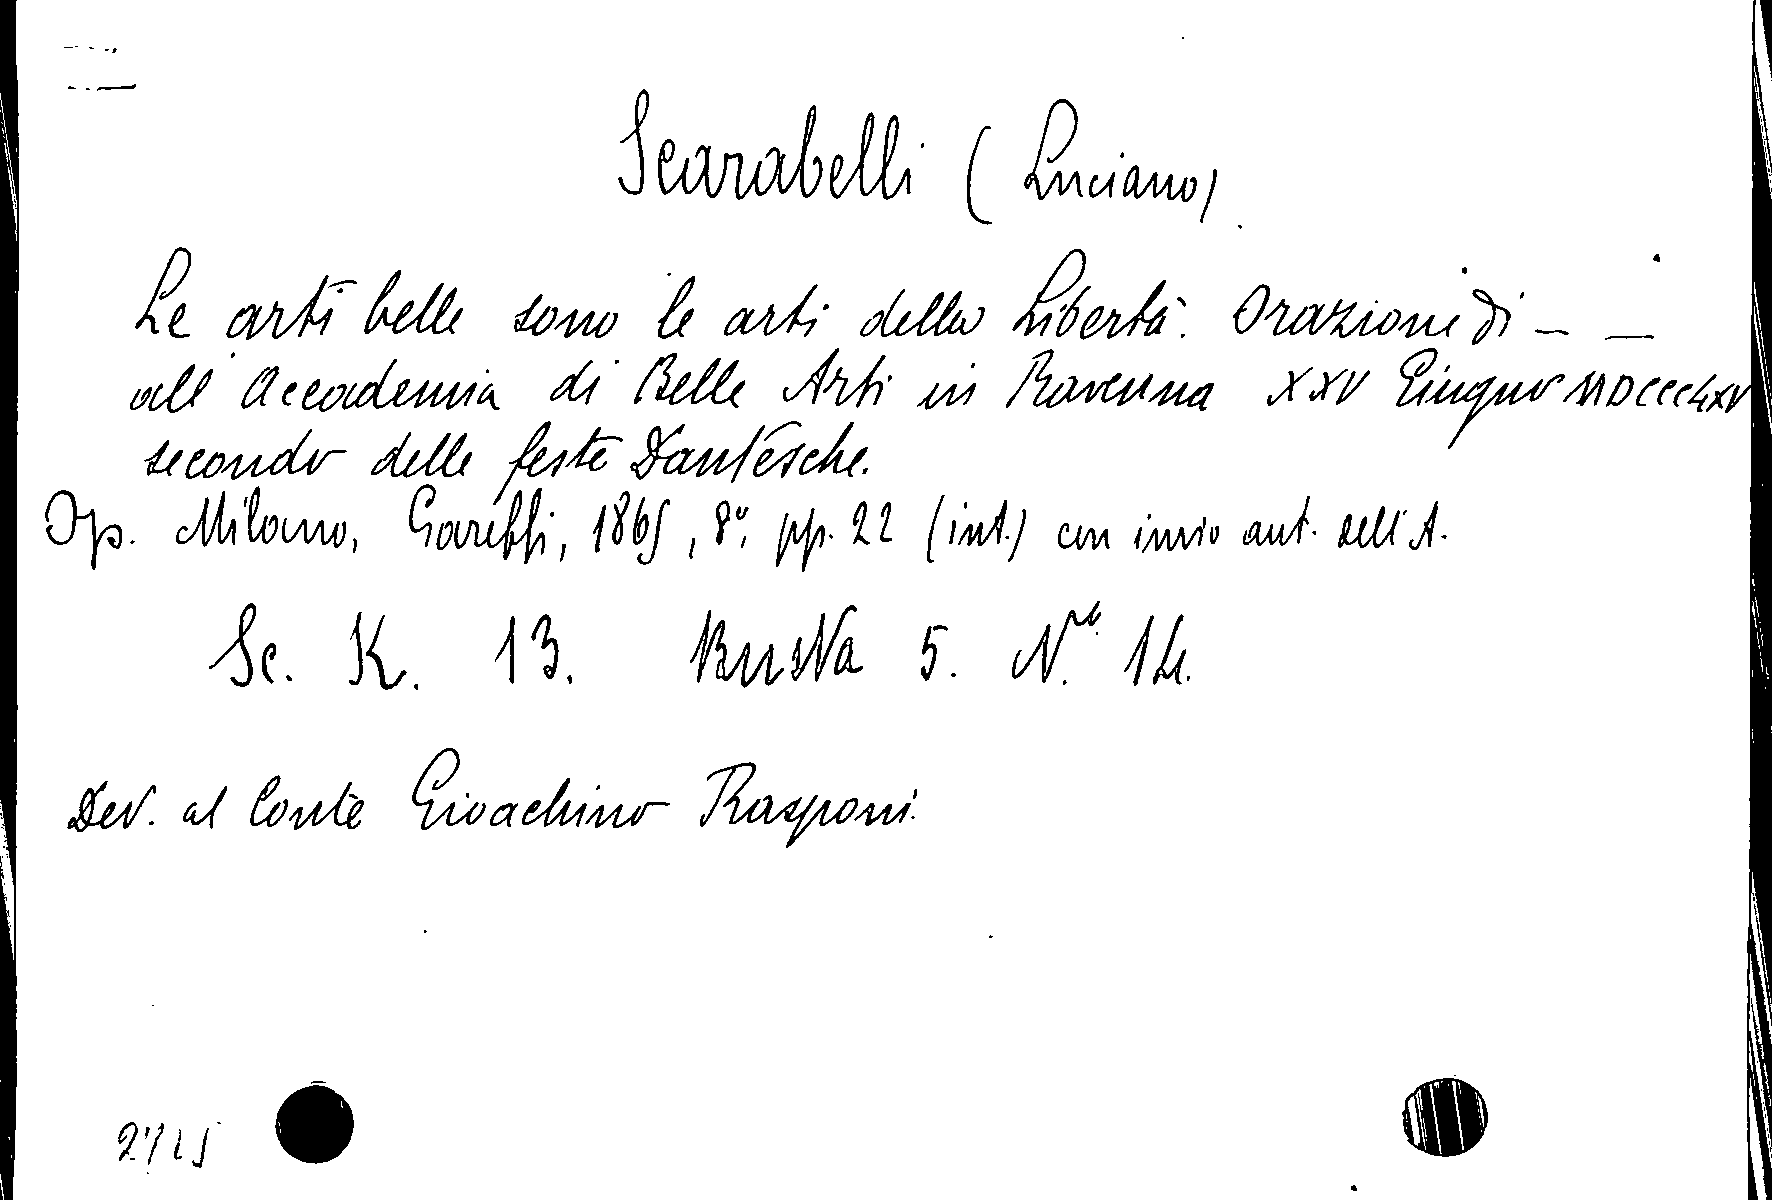 Scarabelli (Luciano)
Le arti belle sono le arti della Libertà. Orazione di — —
all'Accademia di Belle Arti in Ravenna XXV Giugno MDCCCLXV
secondo delle feste Dantesche.
Op. Milano, Gareffi, 1865, 8°, pp. 22 (int.) con invio aut. dell'A.
Sc. K. 13. Busta 5. N.° 14.
Ded. al Conte Gioachino Rasponi.